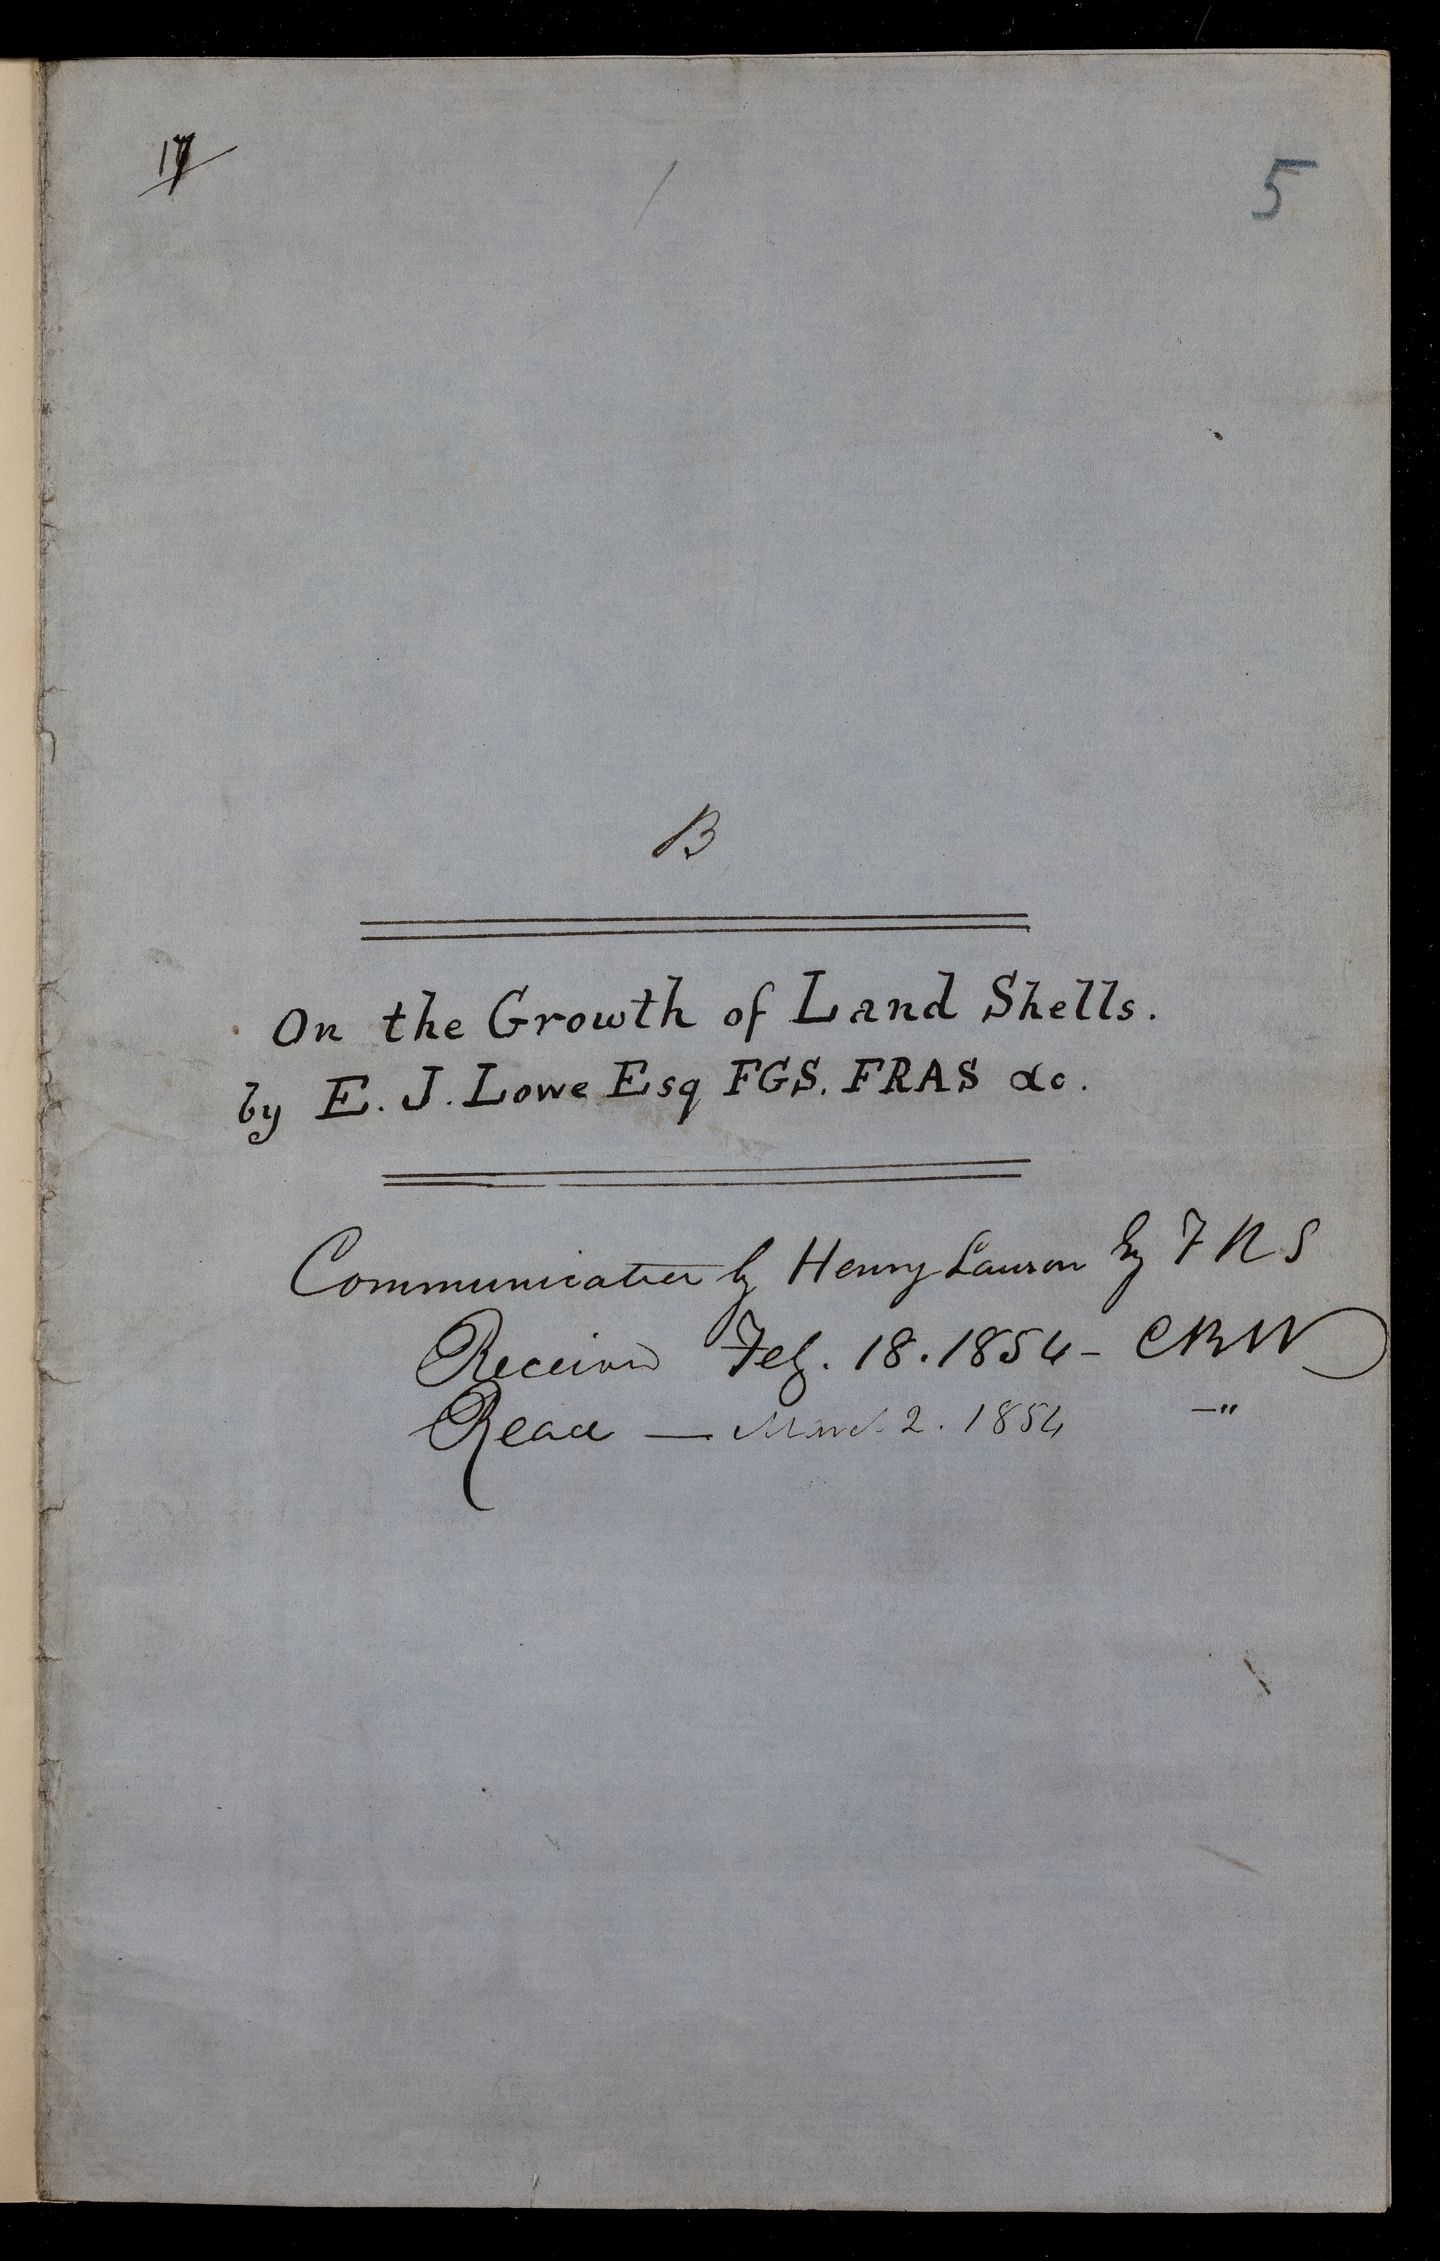 17
5
B
On the Growth of Land Shells.
by E. J. Lowe Esq FGS. FRAS &c.
Communicated by Henry Lawson Esq F R S
Received Feb. 18. 1854 - CRW
Read — March 2. 1854 —"